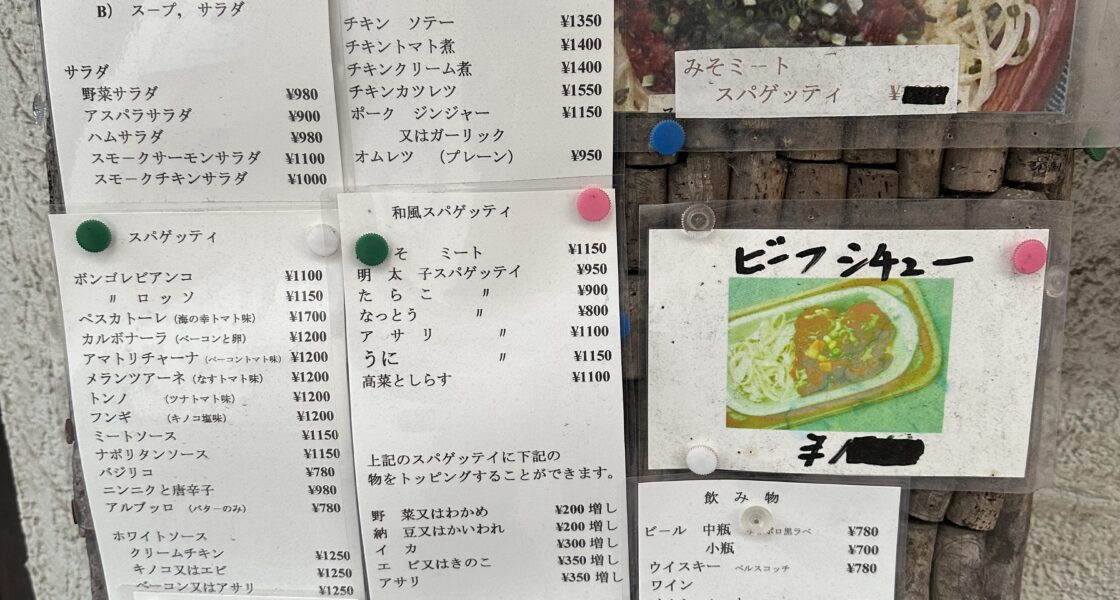 B) スープ, サラダ
サラダ
野菜サラダ ¥980
アスパラサラダ ¥900
ハムサラダ ¥980
スモークサーモンサラダ ¥1100
スモークチキンサラダ ¥1000
チキン ソテー ¥1350
チキントマト煮 ¥1400
チキンクリーム煮 ¥1400
チキンカツレツ ¥1550
ポーク ジンジャー ¥1150
又はガーリック
オムレツ (プレーン) ¥950
みそミート
スパゲッティ ¥
スパゲッティ
ボンゴレビアンコ ¥1100
〃 ロッソ ¥1150
ペスカトーレ (海の幸トマト味) ¥1700
カルボナーラ (ベーコンと卵) ¥1200
アマトリチャーナ (ベーコントマト味) ¥1200
メランツアーネ (なすトマト味) ¥1200
トンノ (ツナトマト味) ¥1200
フンギ (キノコ塩味) ¥1200
ミートソース ¥1150
ナポリタンソース ¥1150
バジリコ ¥780
ニンニクと唐辛子 ¥980
アルブッロ (バターのみ) ¥780
ホワイトソース
クリームチキン ¥1250
キノコ又はエビ ¥1250
ベーコン又はアサリ ¥1250
和風スパゲッティ
そ ミート ¥1150
明太子スパゲッティ ¥950
たらこ 〃 ¥900
なっとう 〃 ¥800
アサリ 〃 ¥1100
うに 〃 ¥1150
高菜としらす ¥1100
上記のスパゲッテイに下記の
物をトッピングすることができます。
野 菜又はわかめ ¥200増し
納 豆又はかいわれ ¥200増し
イ カ ¥300増し
エ ビ又はきのこ ¥350増し
アサリ ¥350増し
ビーフシチュー
¥1
飲み物
ビール 中瓶 ポロ黒ラベ ¥780
小瓶 ¥700
ウイスキー ベルスコッチ ¥780
ワイン